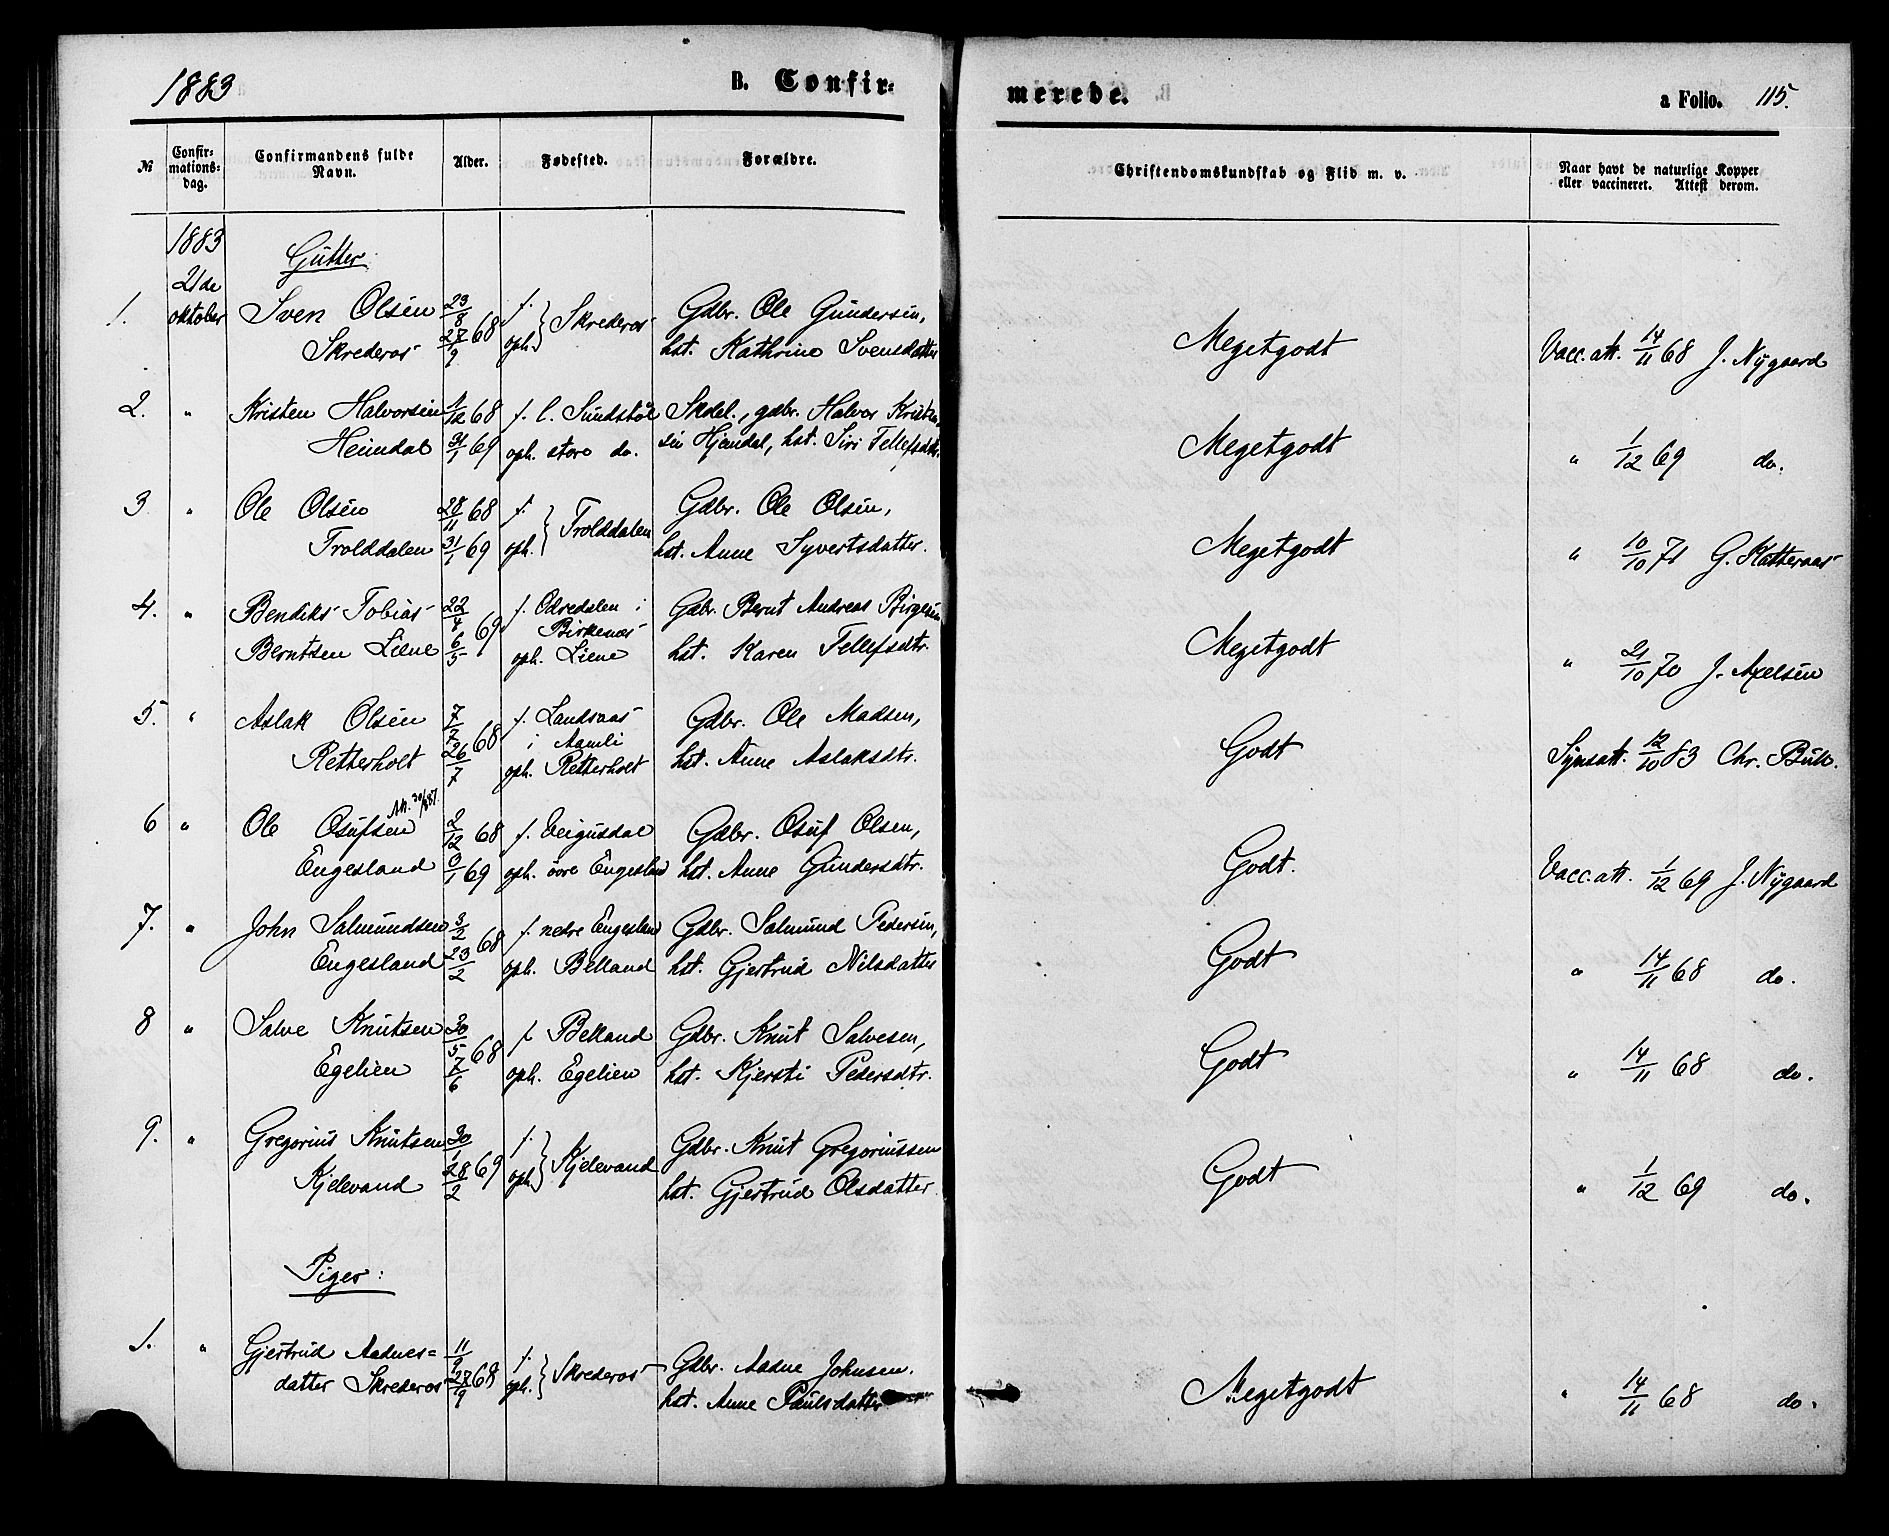 1883
B. Confir-
merede.
a Folio. 115.
№
Confir-
mations-
dag.
Confirmandens fulde
Navn.
Alder.
Fødested.
Forældre.
Christendomskundskab og Flid m. v.
Naar havt de naturlige Kopper
eller vaccineret. Attest derom.
1883
21de
oktober
Gutter
1. Sven Olsen 23/8 68 f. Skrederos Gdbr. Ole Gundersen, Megetgodt Vacc. att. 14/11 68 J. Nygaard
Skrederos 27/9 oph. hst. Kathrine Svensdatter
2. " Kristen Halvorsen 1/12 68 f. l. Sundstøl Skdel., gdbr. Halvor Krist Megetgodt " 1/12 69 do.
Heimdal 31/1 69 oph. store do. sen Hjemdal, hst. Siri Tellefsdtr.
3. " Ole Olsen 28/11 68 f. Trolddalen Gdbr. Ole Olsen, Megetgodt " 10/10 71 G. Katteraas
Trolddalen 31/1 69 oph. hst. Anne Syvertsdatter.
4. " Bendiks Tobias 22/4 69 f. Odredalen i Gdbr. Bernt Andreas Birgesen Megetgodt " 21/10 70 J. Axelsen
Birkenæs
Berntsen Liene 6/5 oph. Liene hst. Karen Tellefsdtr.
5. " Aslak Olsen 7/7 68 f. Landsaas Gdbr. Ole Madsen, Godt Synsatt. 12/10 83 Chr. Bull.
i Aamli
Retterholt 26/7 oph. Retterholt hst. Anne Aslaksdtr.
6 " Ole Osufsen 2/12 68 f. Veigusdal Gdbr. Osuf Olsen, Godt. Vacc. att. 1/12 69 J. Nygaard
Engesland 0/1 69 oph. övre Engesland hst. Anne Gundersdtr.
7. " John Salmundsen 3/2 68 f. nedre Engesland Gdbr. Salmund Pedersen, Godt " 14/11 68 do.
Engesland 23/2 oph. Belland hst. Gjertrud Nilsdatter
8 " Salve Knutsen 30/5 68 f Belland Gdbr. Knut Salvesen, Godt " 14/11 68 do.
Egelien 7/6 oph. Egelien hst. Kjersti Pedersdtr.
9. " Gregorius Knutsen 30/1 69 f. Kjelevand Gdbr. Knut Gregoriussen Godt " 1/12 69 do.
Kjelevand 28/2 oph. hst. Gjertrud Olsdatter.
Piger:
1. " Gjertrud Aadnes= 11/9 68 f. Skrederos Gdbr. Aadne Johnsen. Megetgodt " 14/11 68 do.
datter Skrederos 28/9 oph. hst. Anne Paulsdatter